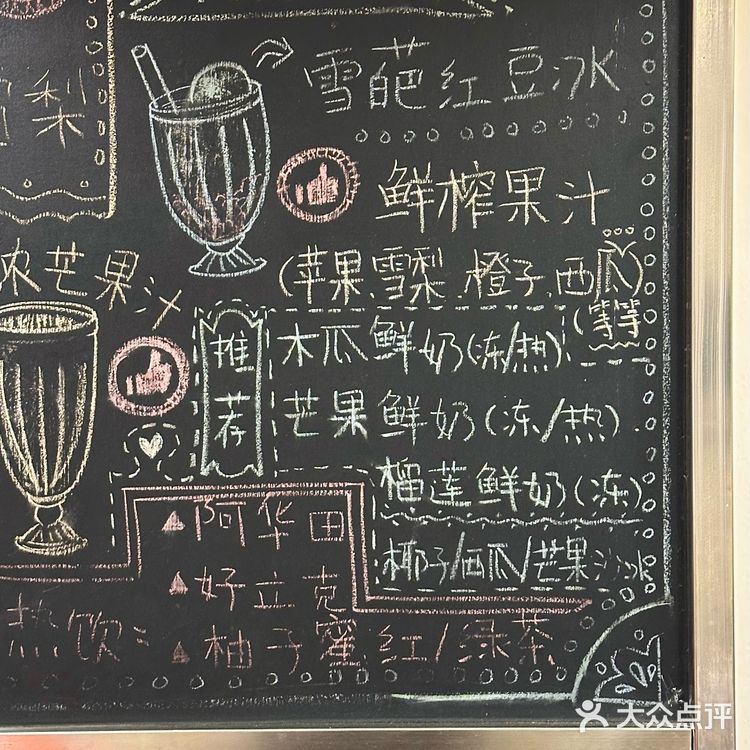 雪葩红豆冰
梨
鲜榨果汁
(苹果.雪梨.橙子.西瓜)
(等等
浓芒果汁
推荐
木瓜鲜奶(冻/热)
芒果鲜奶(冻/热)
榴莲鲜奶(冻)
椰子/西瓜/芒果沙冰
热饮:
阿华田
好立克
柚子蜜红/绿茶
大众点评